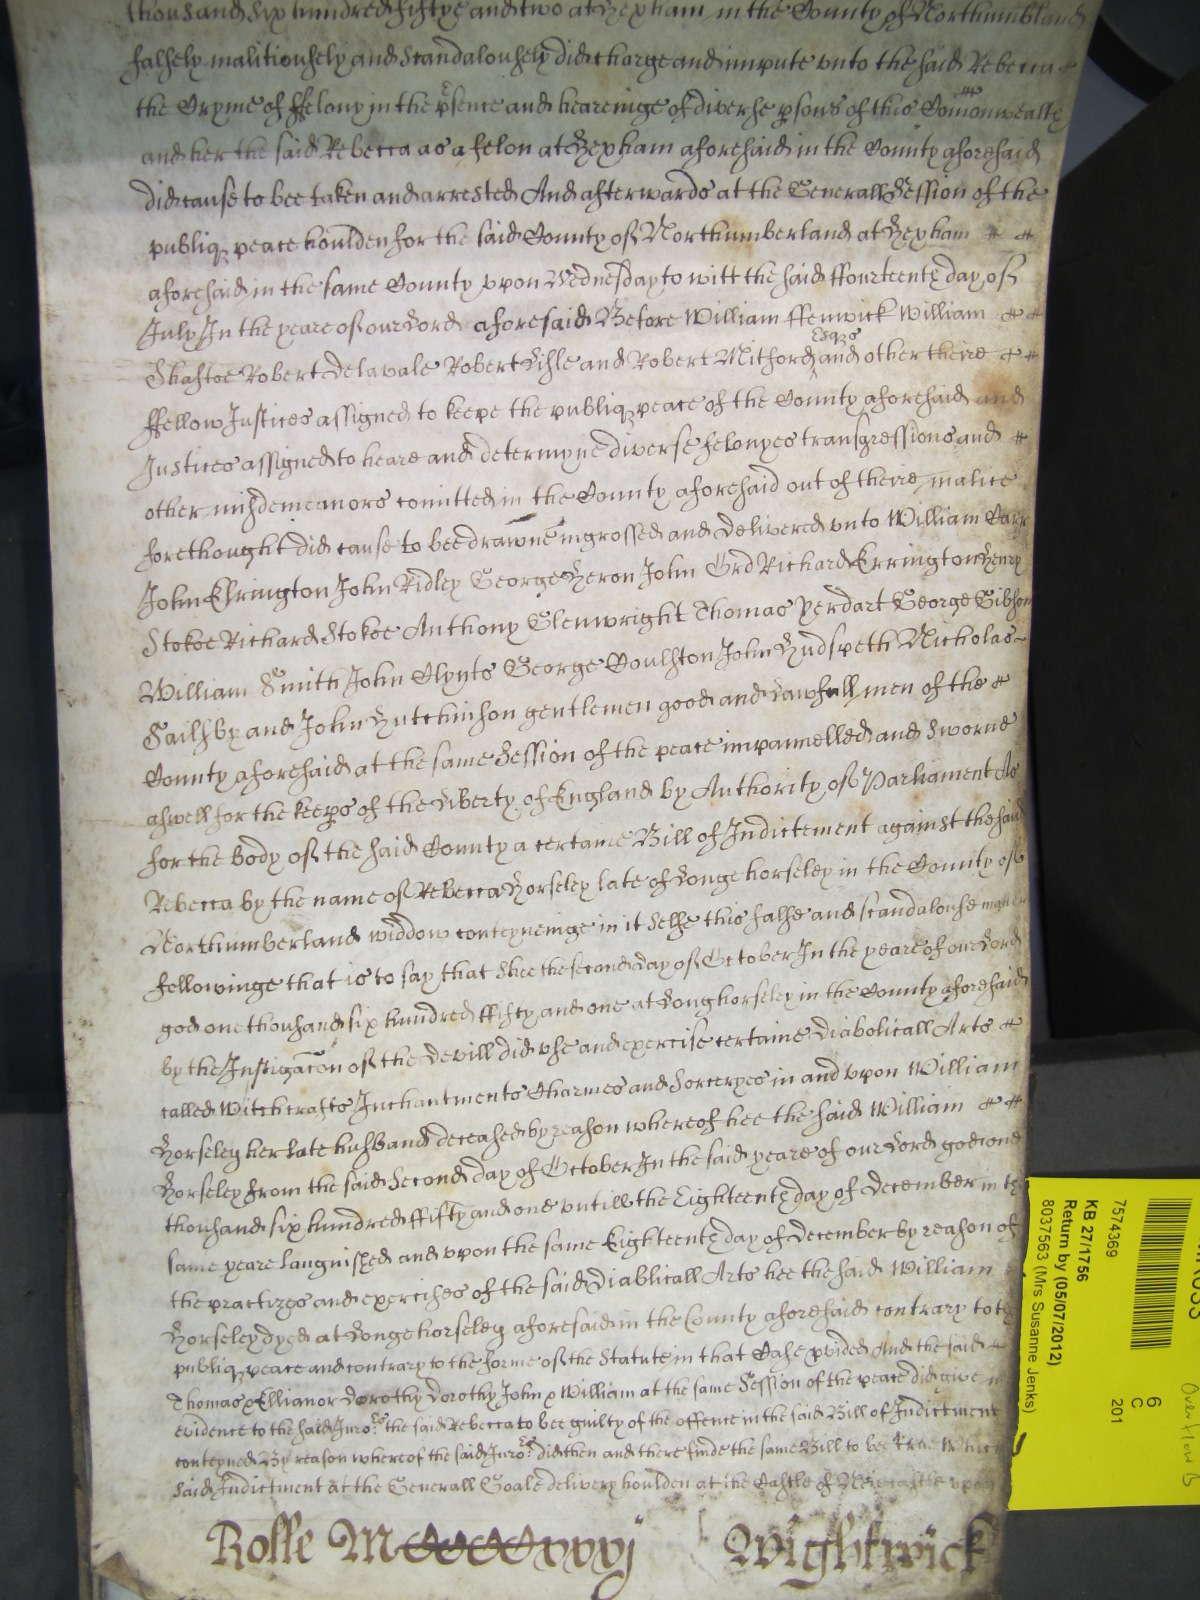 thousand six hundred fiftye and two at Hexham in the County of Northumbland
falsely malitiousely and Scandalousely did charge and impute vnto the said Rebecca
the Cryme of ffelony in the psence and heareinge of diverse psons of this Comonwealth
and her the said Rebecca as a felon at Hexham aforesaid in the County aforesaid
did cause to bee taken and arrested And afterwards at the Generall Session of the
publiq peace houlden for the said County of Northumberland at Hexham
aforesaid in the same County vpon Wednesday to witt the said ffourteenth day of
July In the yeare of our Lord aforesaid Before William ffenwick William
Shaftoe Robert Delavale Robert Lisle and Robert Mitford Esqrs and other theire
ffellow Justices assigned to keepe the publiq peace of the County aforesaid and
Justices assigned to heare and determyne diverse felonyes transgressions and
other misdemeanors comitted in the County aforesaid out of theire malice
forethought did cause to bee drawne ingrossed and delivered vnto William Carr
John Elrington John Ridley George Heron John Ord Richard Errington Henry
Stokoe Richard Stokoe Anthony Glenwright Thomas Yerdart George Gibson
William Smith John Clynts George Coulston John Hudspeth Nicholas
Sailsby and John Hutchinson gentlemen good and Lawfull men of the
County aforesaid at the same Session of the peace impannelled and Sworne
aswell for the keeps of the Liberty of England by Authority of Parliament As
for the body of the said County a certaine Bill of Indictement against the said
Rebecca by the name of Rebecca Horseley late of Longe horseley in the County of
Northumberland widdow conteyneinge in it Selfe this false and scandalouse matter
followinge that is to say that Shee the second day of October In the yeare of our Lord
god one thousand six hundred ffifty and one at Longhorseley in the County aforesaid
by the Instigacon of the Devill did vse and exercise certaine Diabolicall Arts
called Witchcrafts Inchantments Charmes and Sorceryes in and vpon William
Horseley her late husband deceased by reason whereof hee the said William
Horseley from the said Second day of October In the said yeare of our Lord god one
thousand six hundred ffifty and one vntill the Eighteenth day of December in the
same yeare Languished and vpon the same Eighteenth day of December by reason of
the practizes and exercises of the said Diablicall Arts hee the said William
Horseley dyed at Longe horseley aforesaid in the County aforesaid contrary to the
publiq peace and contrary to the forme of the Statute in that Case pvided And the said
Thomas Ellianor Dorothy Dorothy John William at the same Session of the peace did give in
evidence to the said Juros the said Rebecca to bee guilty of the offence in the said Bill of Indictment
conteyned By reason whereof the said Juros did then and there finde the same Bill to bee true Which
Said Indictment at the Generall Goale delivery houlden at the Castle of Newcastle vpon
Rolle MCCCCCxxxj Wightwick
7574369
KB 27/1756
Return by (05/07/2012)
8037563 (Mrs Susanne Jenks)
6
C
201